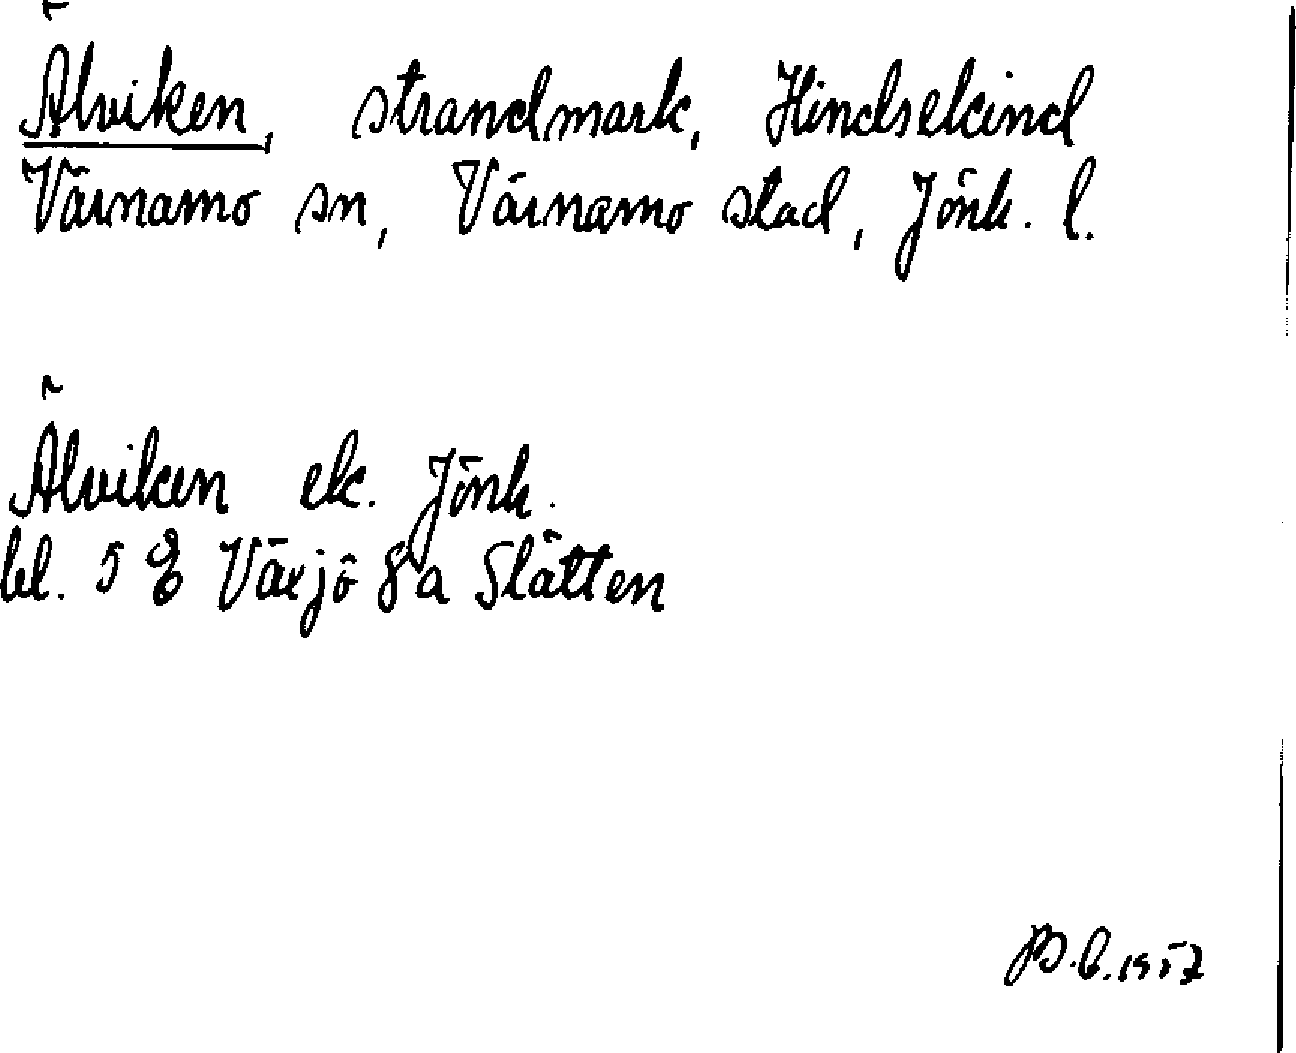 Älviken, strandmark, Hindsekind
Värnamo sn, Värnamo stad, Jönk. l.
Älviken ek. Jönk.
bl. 5 E Växjö 8a Slätten
1957